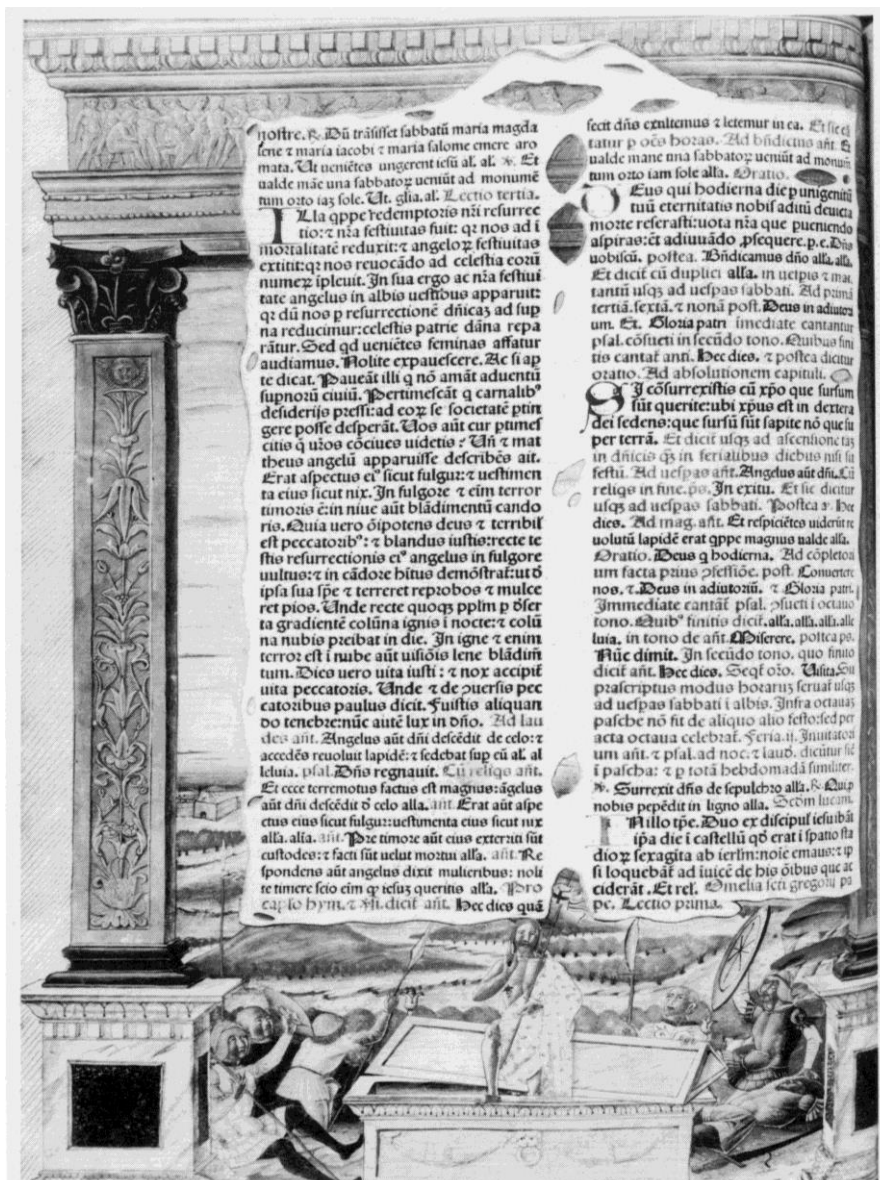 nostre. ℟. Dũ trãsisset sabbatũ maria magda
lene ⁊ maria iacobi ⁊ maria salome emere aro
mata. Ut veniẽtes ungerent iesũ al. al. ℣. Et
ualde mãe una sabbatoꝝ ueniũt ad monumẽ
tum orto iaꝫ sole. Ut. glia. al. Lectio tertia.
ILla qppe redemptoris nr̃i resurrec
tio: ⁊ nr̃a festiuitas fuit: qꝛ nos ad i
mortalitatẽ reduxit: ⁊ angeloꝝ festiuitas
extitit: qꝛ nos reuocãdo ad celestia eorũ
numeꝝ ĩpleuit. In sua ergo ac nr̃a festiui
tate angelus in albis uestibus apparuit:
qꝛ dũ nos p resurrectionẽ dñicaꝫ ad sup
na reducimur: celestis patrie dãna repa
rãtur. Sed qd ueniẽtes feminas affatur
audiamus. Nolite expauescere. Ac si ap
te dicat. Paueãt illi q nõ amãt aduentũ
supnorũ ciuiũ. Pertimescãt q carnalibꝰ
desiderijs pressi: ad eoꝝ se societatẽ ptin
gere posse desperãt. Uos aũt cur ptimes
citis q ur̃os cõciues uidetis? Uñ ⁊ mat
theus angelũ apparuisse describẽs ait.
Erat aspectus eiꝰ sicut fulgur: ⁊ uestimen
ta eius sicut nix. In fulgore ⁊ eĩm terror
timoris ẽ: in niue aũt blãdimentũ cando
ris. Quia uero õipotens deus ⁊ terribil
est peccatoribꝰ: ⁊ blandus iustis: recte te
stis resurrectionis eiꝰ angelus in fulgore
uultus: ⁊ in cãdore hĩtus demõstrat̃: ut d̃
ipsa sua sp̃e ⁊ terreret reprobos ⁊ mulce
ret pios. Unde recte quoqꝫ pplm p d̃ser
ta gradientẽ colũna ignis i nocte: ⁊ colũ
na nubis preibat in die. In igne ⁊ enim
terror est i nube aũt uisiõis lene blãdim̃
tum. Dies uero uita iusti: ⁊ nox accipit̃
uita peccatoris. Unde ⁊ de ꝯuersis pec
catoribus paulus dicit. Fuistis aliquan
do tenebre: nũc autẽ lux in dño. Ad lau
des añt. Angelus aũt dñi descẽdit de celo: ⁊
accedẽs reuoluit lapidẽ: ⁊ sedebat sup eũ al. al
leluia. psal. Dñs regnauit. Cũ reliqs añt.
Et ecce terremotus factus est magnus: ãgelus
aũt dñi descẽdit d̃ celo alla. añt. Erat aũt aspe
ctus eius sicut fulgur: uestimenta eius sicut nix
alla. alia. añt. Pre timore aũt eius exterriti sũt
custodes: ⁊ facti sũt uelut mortui alla. añt. Re
spondens aũt angelus dixit mulieribus: noli
te timere scio eĩm qꝛ iesuꝫ queritis alla. Pro
caplo hym. ⁊ ℣i. dicit̃ añt. Hec dies quã
fecit dñs exultemus ⁊ letemur in ea. Et sic cã
tatur p oẽs horas. Ad bñdictus añt. Et
ualde mane una sabbatoꝝ ueniũt ad monum̃
tum orto iam sole alla. Oratio.
DEus qui hodierna die p unigenitũ
tuũ eternitatis nobis aditũ deuicta
morte reserasti: uota nr̃a que pueniendo
aspiras: ẽt adiuuãdo ꝓsequere. p. e. Dñs
uobiscũ. postea. Bñdicamus dño alla. alla.
Et dicit̃ cũ duplici alla. in uespis ⁊ mat.
tantũ usqꝫ ad uespas sabbati. Ad primã
tertiã. sextã. ⁊ nonã post. Deus in adiutori
um. Et. Gloria patri imediate cantantur
psal. cõsueti in secũdo tono. Quibus fini
tis cantat̃ anti. Hec dies. ⁊ postea dicitur
oratio. Ad absolutionem capituli.
SI cõsurrexistis cũ xp̃o que sursum
sũt querite: ubi xp̃us est in dextera
dei sedens: que sursũ sũt sapite nõ que su
per terrã. Et dicit̃ usqꝫ ad ascensionẽ taꝫ
in dñicis qꝫ in ferialibus diebus nisi sit
festũ. Ad uespas añt. Angelus aũt dñi. Cũ
reliqs in fine. ps. In exitu. Et sic dicitur
usqꝫ ad uespas sabbati. Postea ℣. Hec
dies. Ad mag. añt. Et respiciẽtes uiderũt re
uolutũ lapidẽ erat qppe magnus ualde alla.
Oratio. Deus q hodierna. Ad cõpletori
um facta prius ꝯfessiõe. post. Conuerte
nos. ⁊. Deus in adiutoriũ. ⁊ Gloria patri.
Immediate cantãt̃ psal. ꝯsueti i octauo
tono. Quibꝰ finitis dicit̃. alla. alla. alla. alle
luia. in tono de añt. Miserere. postea ps.
Nũc dimit. In secũdo tono. quo finito
dicit̃ añt. Hec dies. Seqt̃ oro. Uisita. Su
prascriptus modus horarum seruat̃ usqꝫ
ad uespas sabbati i albis. Infra octauaꝫ
pasche nõ fit de aliquo alio festo: sed per
acta octaua celebrat̃. Feria. ii. Inuitatori
um añt. ⁊ psal. ad noc. ⁊ laud. dicũtur sic
ĩ pascha: ⁊ p totã hebdomadã similiter.
℣. Surrexit dñs de sepulchro alla. ℟. Qui p
nobis pepẽdit in ligno alla. Scd̃m lucam.
IN illo tp̃e. Duo ex discipul̃ iesu ibãt
ip̃a die i castellũ qd̃ erat i spatio sta
dioꝝ sexagĩta ab ierlm̃: noĩe emaus: ⁊ ip
si loquebãt̃ ad iuicẽ de his õibus que ac
ciderãt. Et rel̃. Omelia scti gregorij pa
pe. Lectio prima.